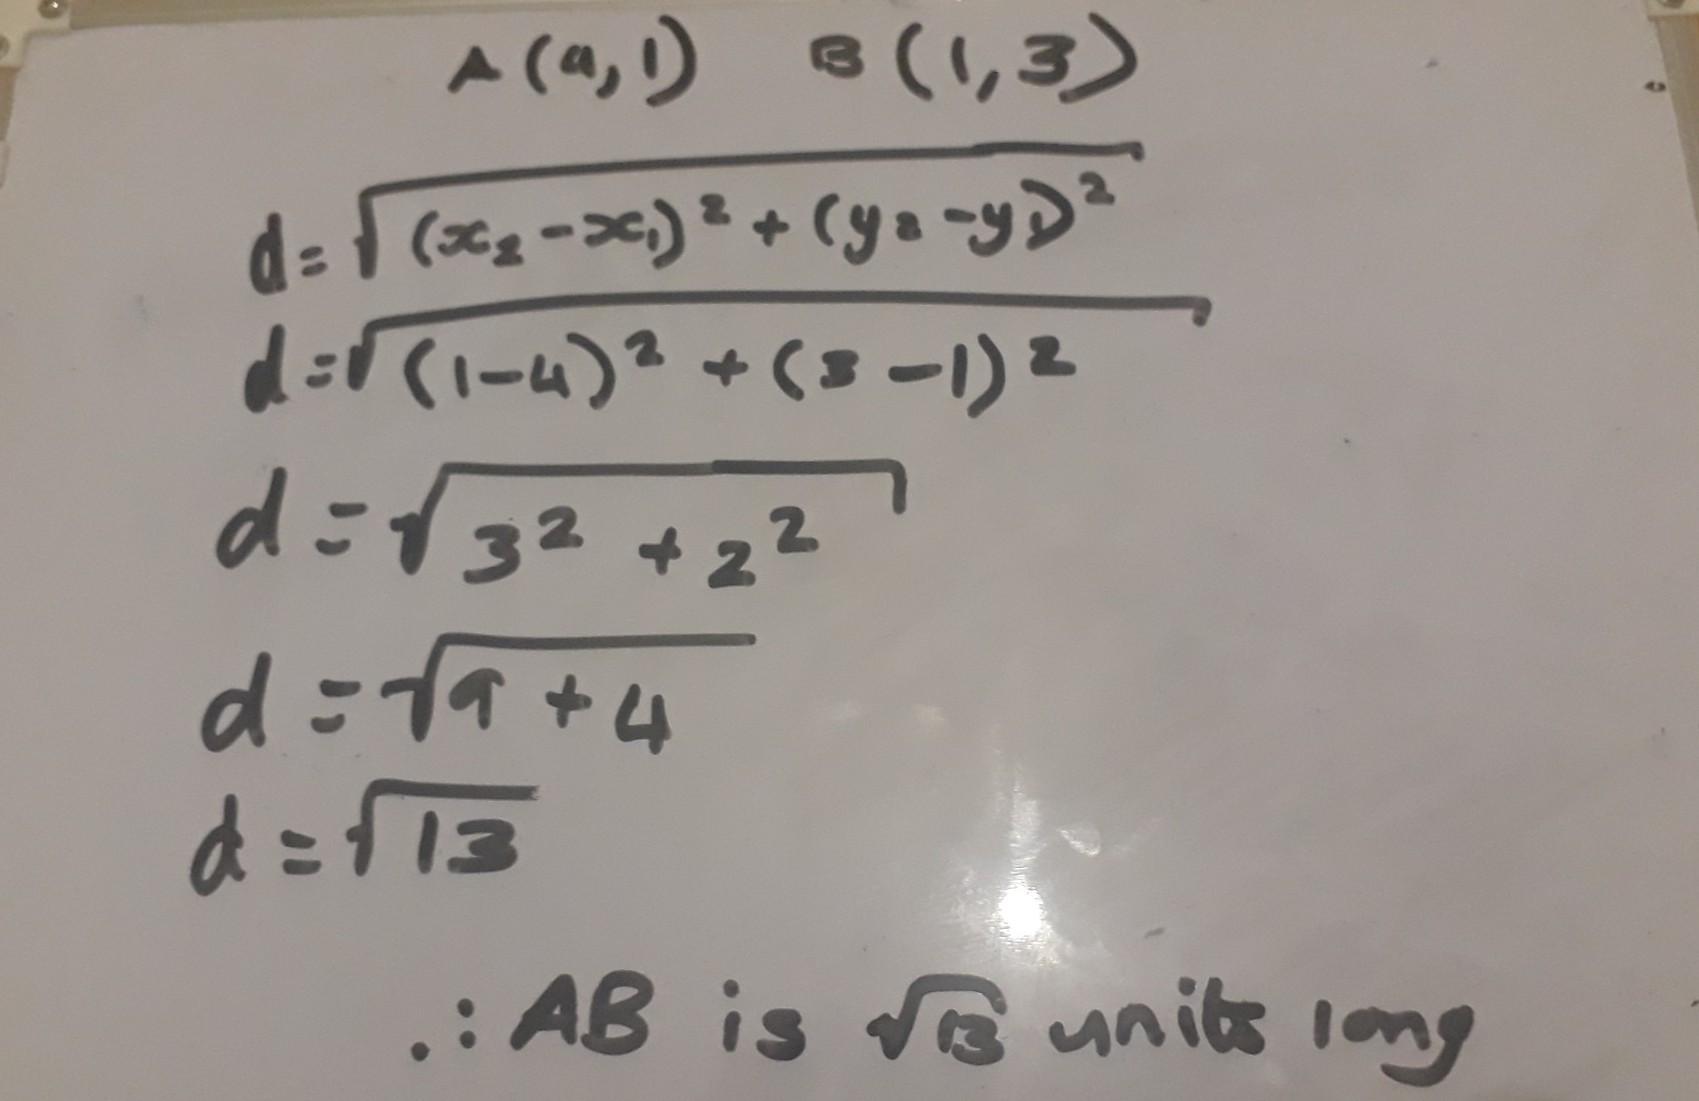 A (4,1) B (1,3)
d=√(x₂-x₁)²+(y₂-y₁)²
d=√(1-4)²+(3-1)²
d=√3²+2²
d=√9+4
d=√13
∴ AB is √13 units long